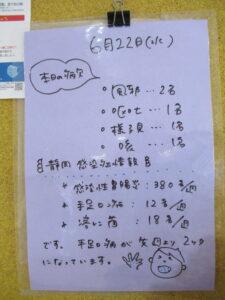 6月22日(水)
本日の病欠
○ 風邪…2名
○ 1名
○ 様子見…1名
○ 咳…1名
静岡 感染症情報
* 感染性胃腸炎:380名/週
* 手足口病:12名/週
* 溶レン菌:18名/週
です。手足口病が 2ック
になっています。